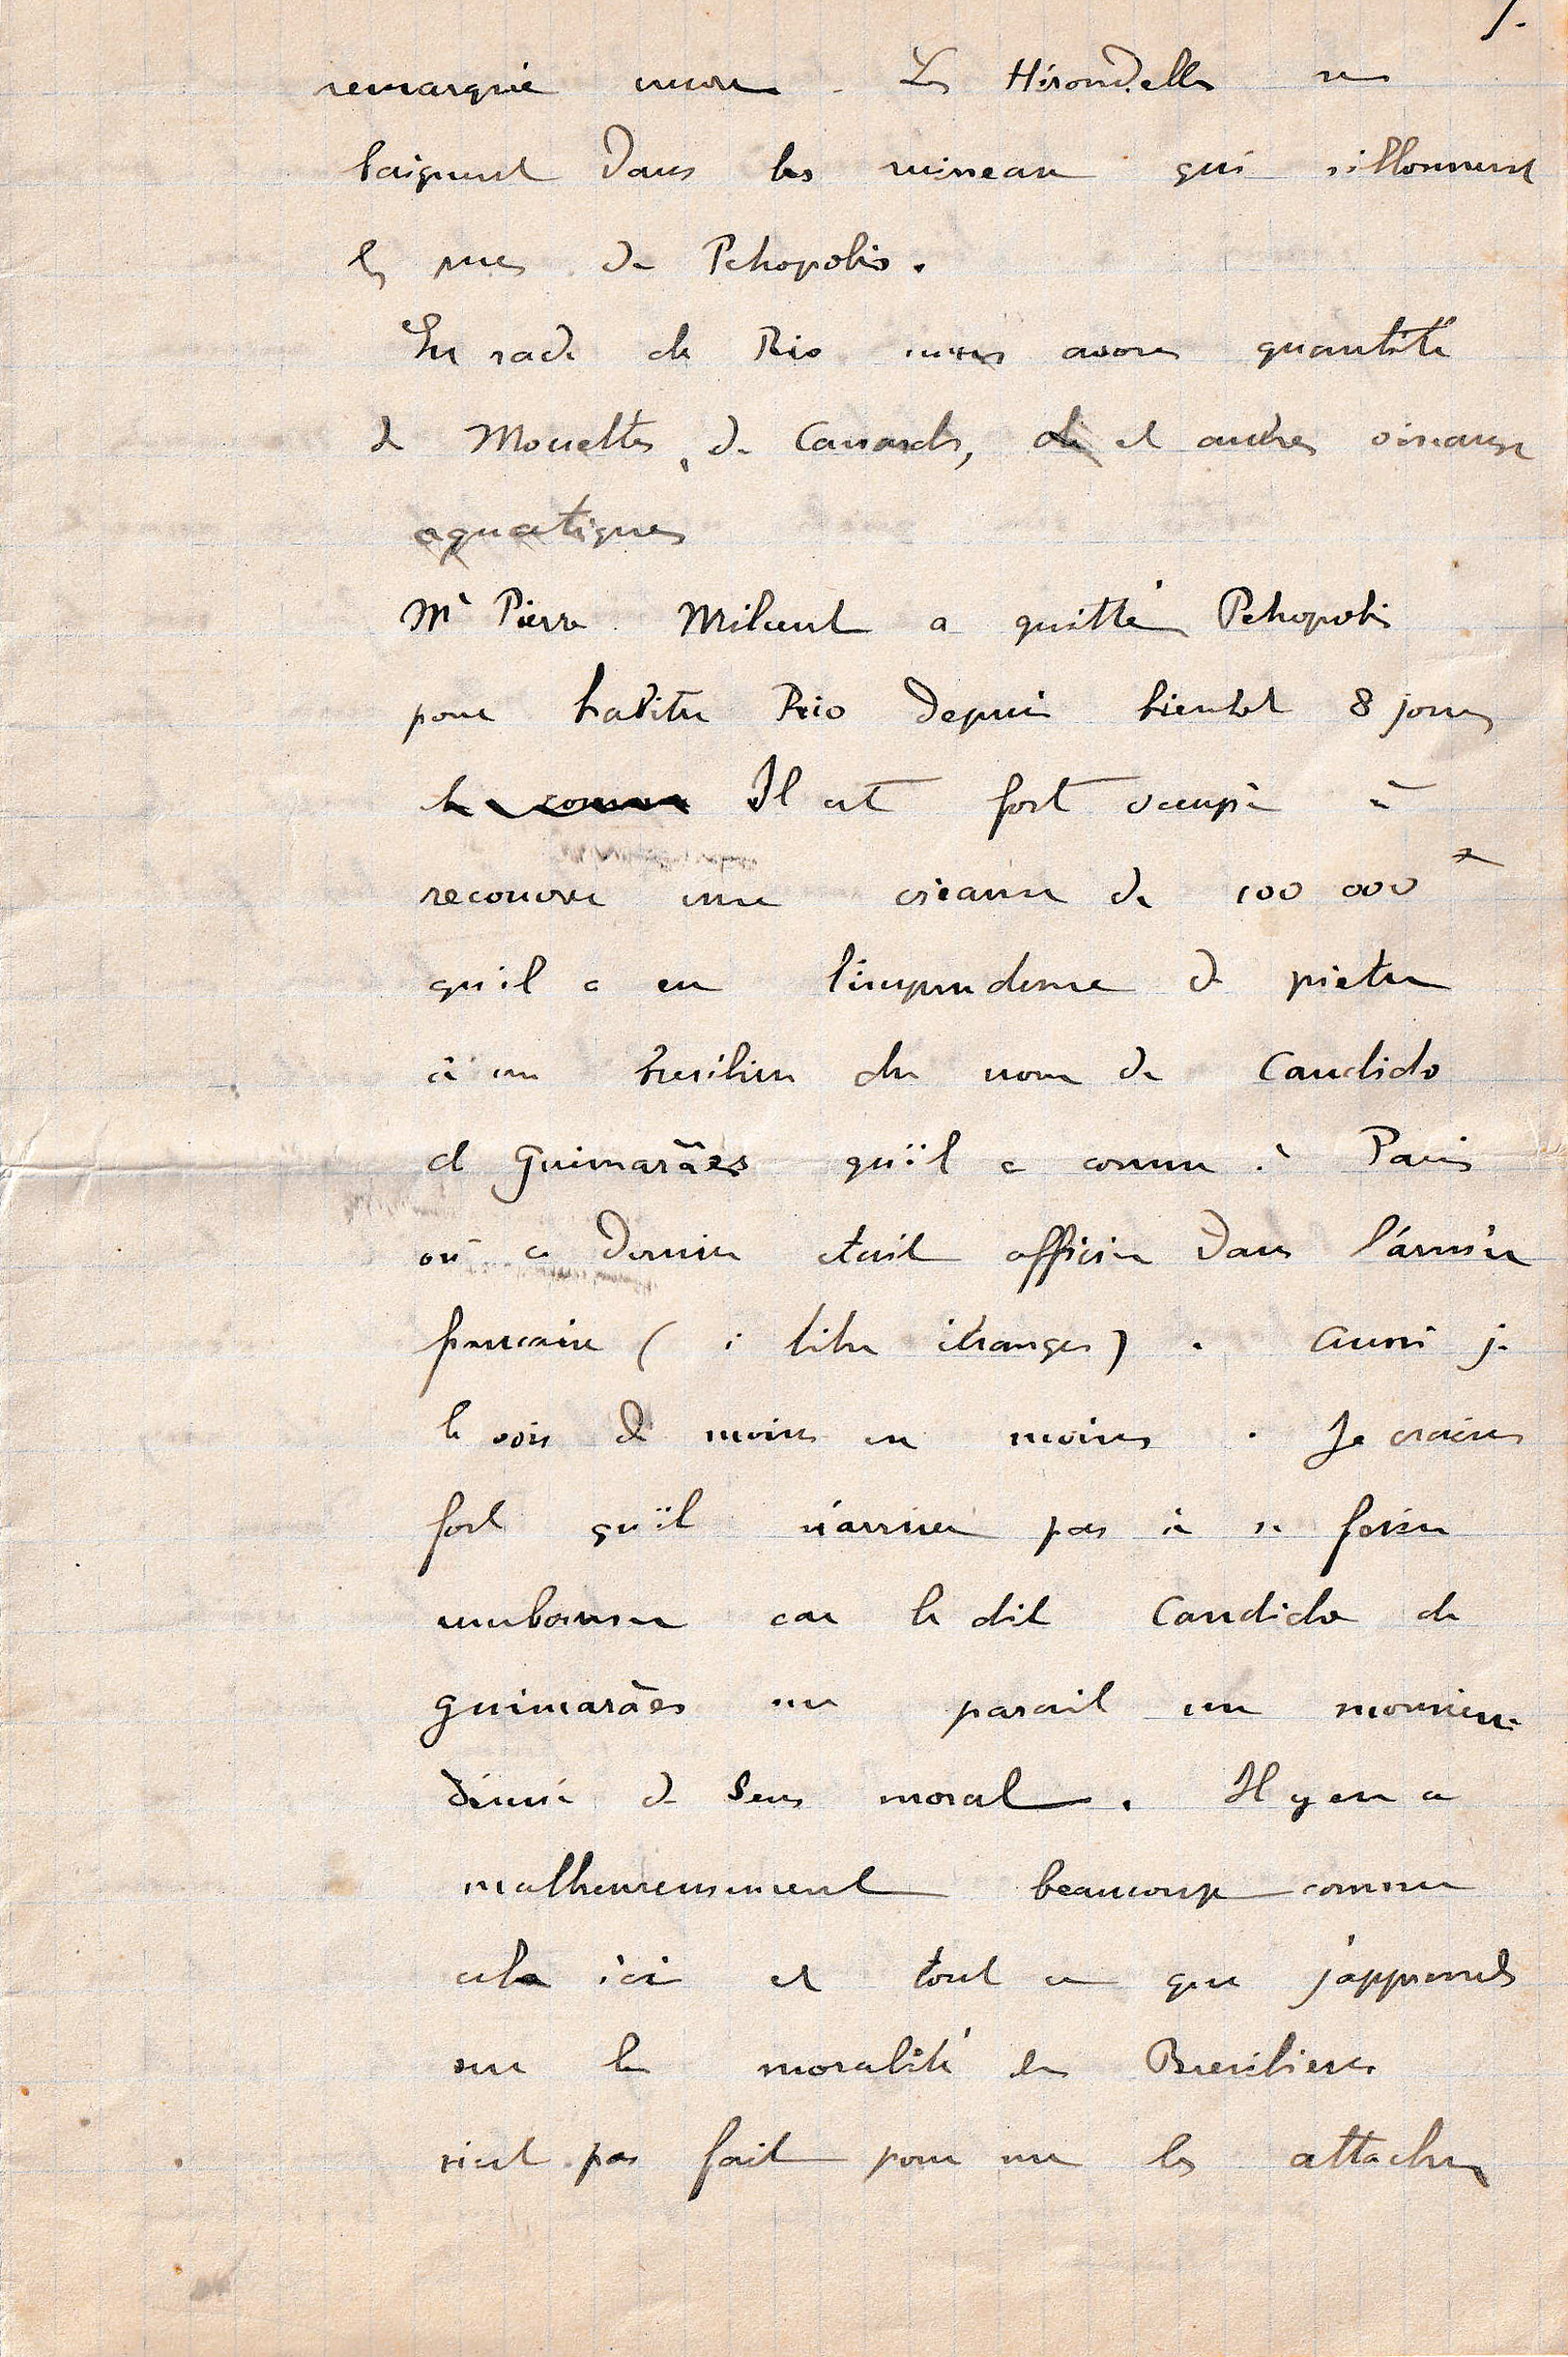 remarquée encore. Les Hirondelles se
baignent dans les ruisseaux qui sillonnent
les rues de Petropolis.
En rade de Rio nous avons quantité
de Mouettes, de Canards, de et autres oiseaux
aquatiques
Mr Pierre a quitté Petropolis
pour habiter Rio depuis bientot 8 jours
Il est fort occupé à
recouvrer une créance de 100 000 f
qu'il a eu l'imprudence de prêter
à un bresilien du nom de Candido
de Guimarães qu'il a connu à Paris
où ce dernier etait officier dans l'armée
francaise (à titre étranger). Aussi je
le vois de moins en moins. Je crains
fort qu'il n'arrive pas à se faire
rembourser car le dit Candido de
Guimarães me parait un monsieur
dénué de sens moral. Il y en a
malheureusement beaucoup comme
cela ici et tout ce que j'apprends
sur la moralité des Bresiliens
n'est pas fait pour me les attacher